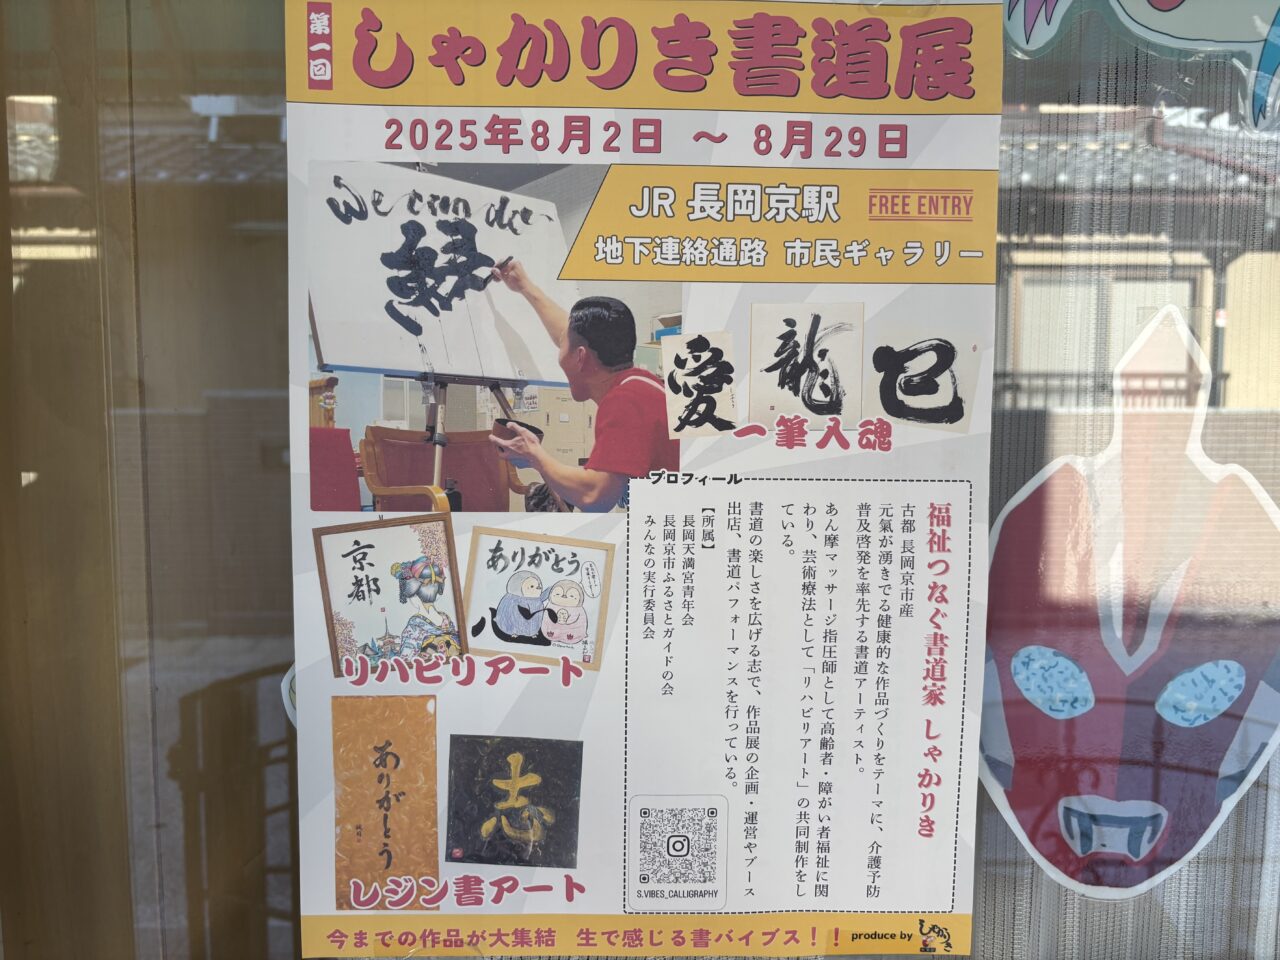 第一回
しゃかりき書道展
2025年8月2日 ～ 8月29日
JR 長岡京駅
FREE ENTRY
地下連絡通路 市民ギャラリー
We can do
縁
愛
龍
巳
一筆入魂
プロフィール
福祉つなぐ書道家 しゃかりき
古都 長岡京市産
元氣が湧きでる健康的な作品づくりをテーマに、介護予防
普及啓発を率先する書道アーティスト。
あん摩マッサージ指圧師として高齢者・障がい者福祉に関
わり、芸術療法として「リハビリアート」の共同制作をし
ている。
書道の楽しさを広げる志で、作品展の企画・運営やブース
出店、書道パフォーマンスを行っている。
【所属】
長岡天満宮青年会
長岡京市ふるさとガイドの会
みんなの実行委員会
京都
ありがとう
リハビリアート
ありがとう
志
レジン書アート
S.VIBES_CALLIGRAPHY
今までの作品が大集結 生で感じる書バイブス！！
produce by
しゃかりき